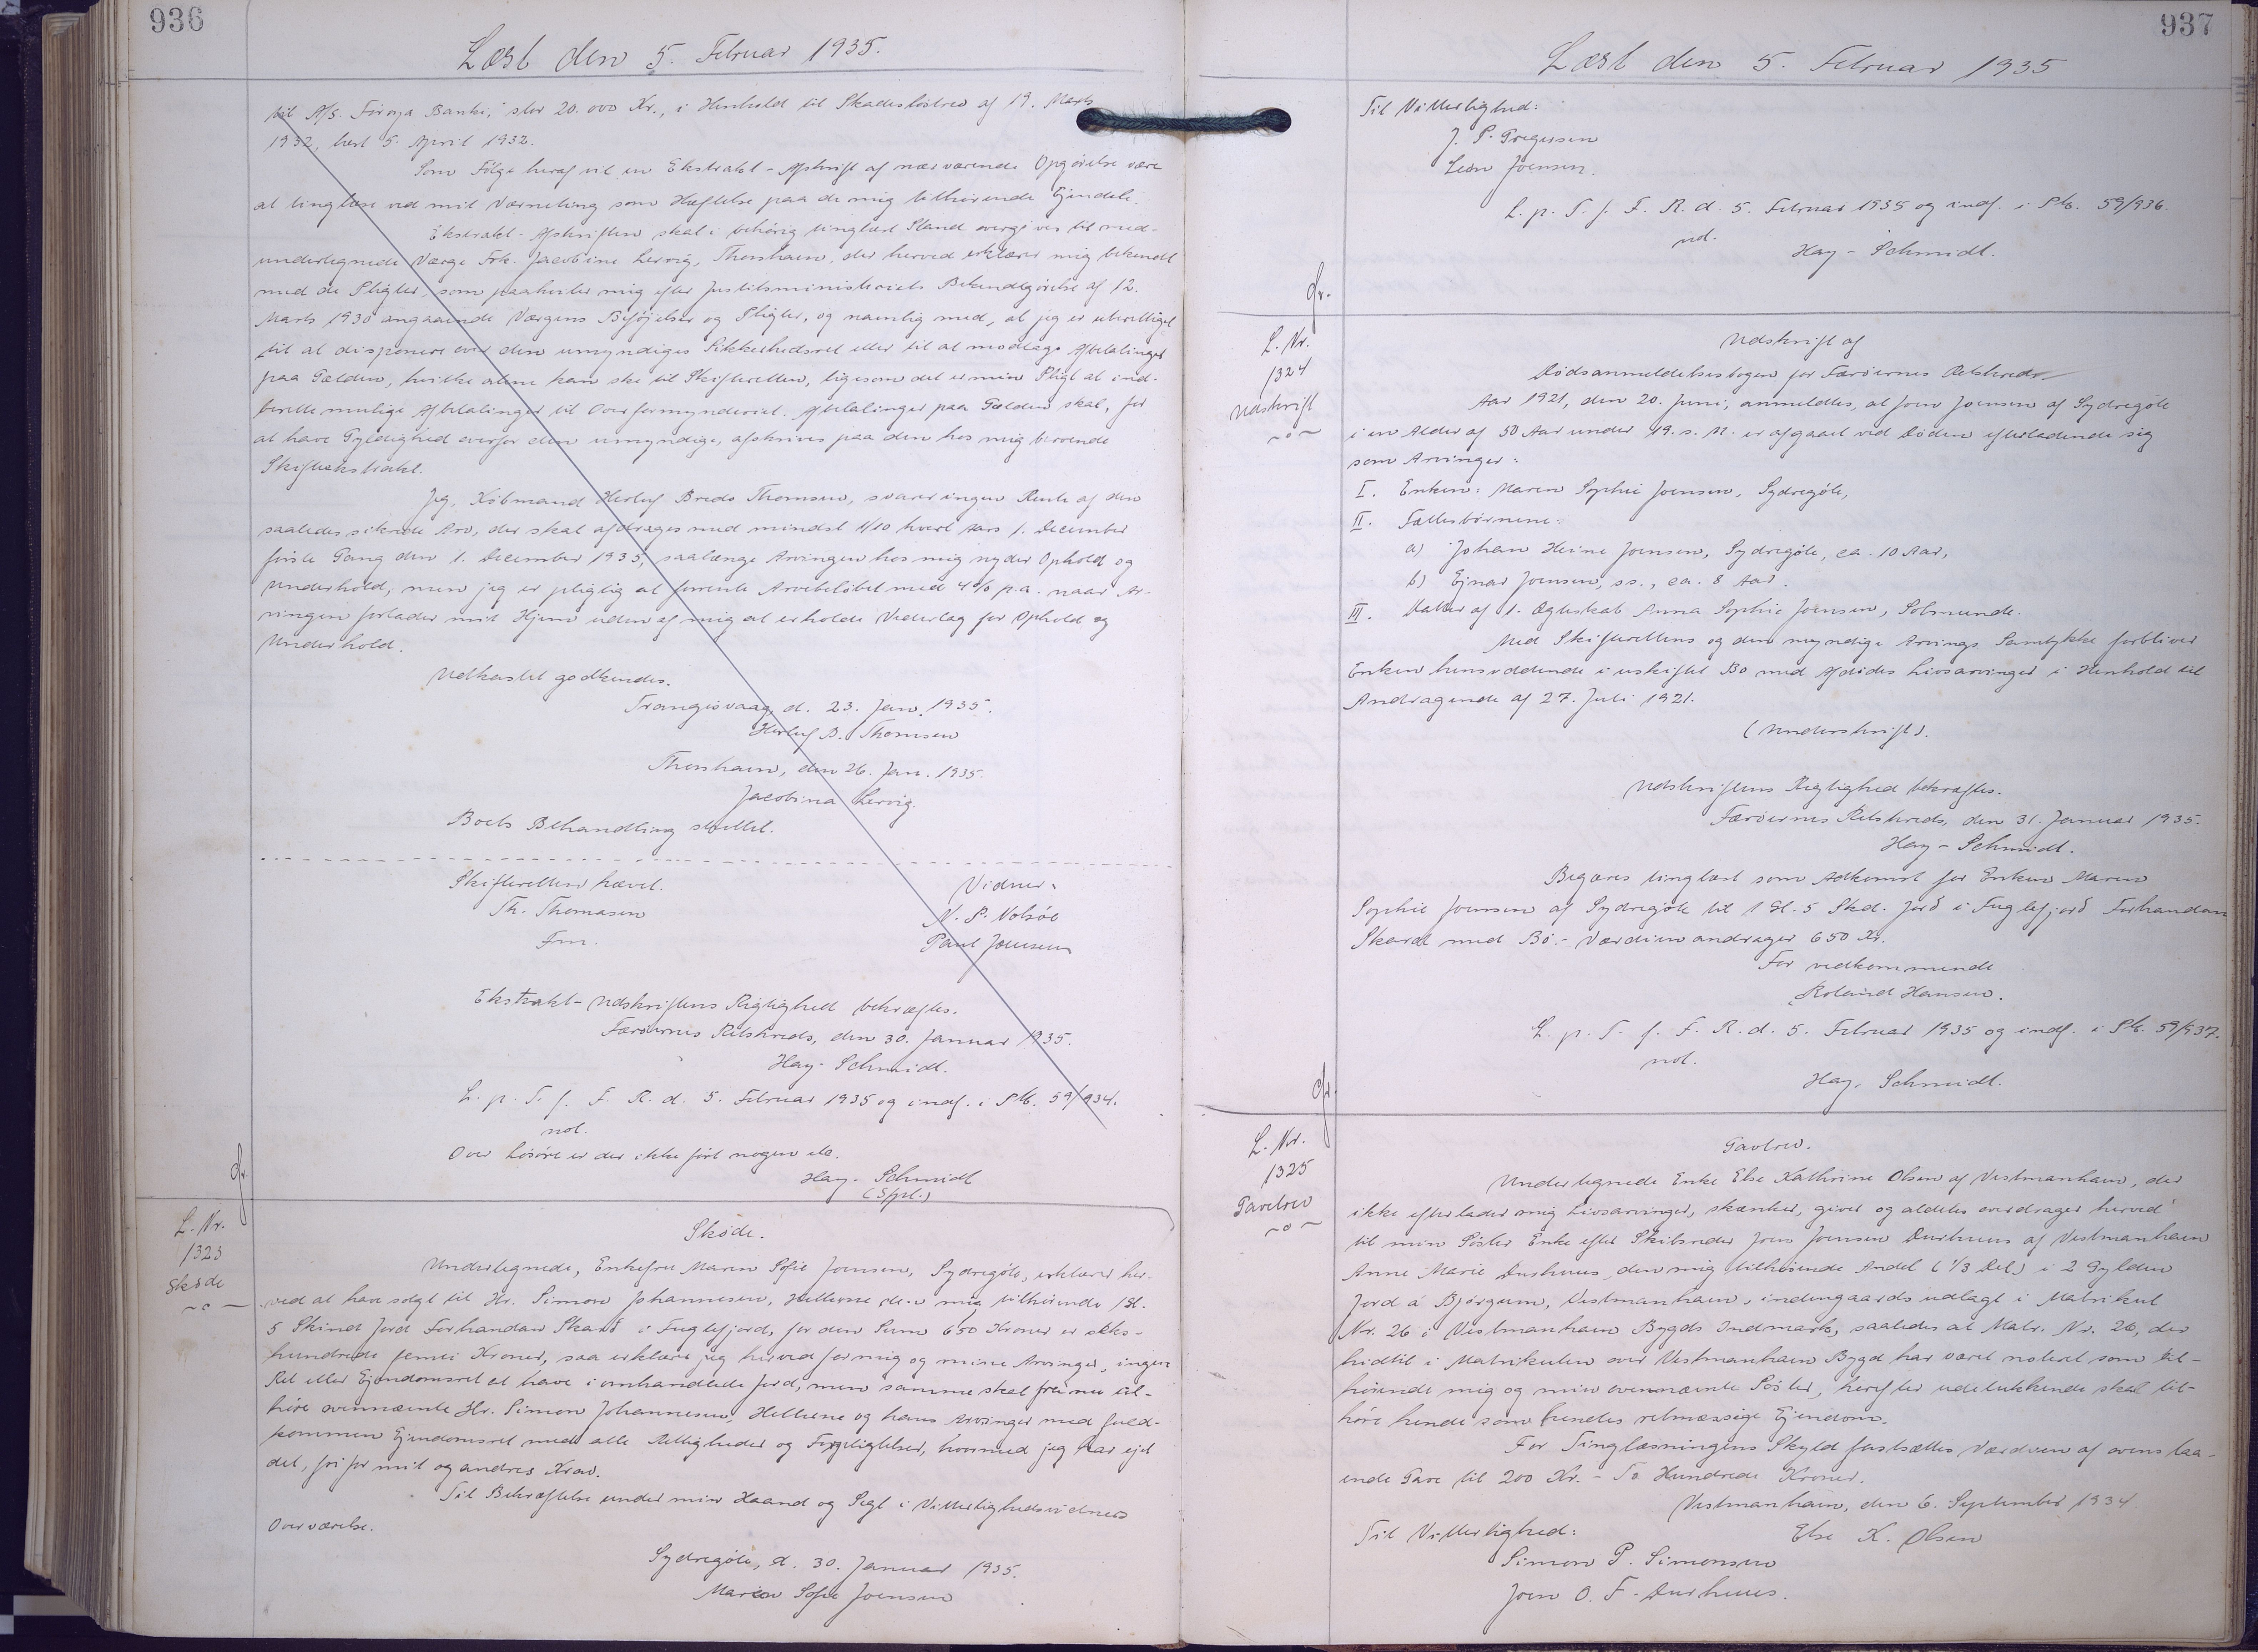 936
Læst den 5. Februar 1935.
til A/S. Føroya Banki, stor 20.000 Kr., i Henhold til Skadesløsbrev af 19. Marts
1932, læst 5. April 1932.
Som Følge heraf vil en Ekstrakt-Afskrift af nærværende Opgørelse være
at tinglæse ved mit Værneting som Hæftelse paa de mig tilhørende Ejendele.
Ekstrakt-Afskriften skal i behørig tinglæst Stand overgives til med-
undertegnede Værge Frk. Jacobine Lervig, Thorshavn, der herved erklærer mig bekendt
med de Pligter, som paahviler mig efter Justitsministeriets Bekendtgørelse af 12.
Marts 1930 angaaende Værgens Beføjelser og Pligter, og navnlig med, at jeg er uberettiget
til at disponere over den umyndiges Sikkerhedsret eller til at modtage Afbetalinger
paa Gælden, hvilke alene kan ske til Skifteretten, ligesom det er min Pligt at ind-
berette mulige Afbetalinger til Overformynderiet. Afbetalinger paa Gælden skal, for
at have Gyldighed overfor den umyndige, afskrives paa den hos mig beroende
Skifteekstrakt.
Jeg, Købmand Herluf Bredo Thomsen, svarer ingen Rente af den
saaledes sikrede Arv, der skal afdrages med mindst 1/10 hvert Aars 1. December
første Gang den 1. December 1935, saalænge Arvingen hos mig nyder Ophold og
Underhold, men jeg er pligtig at forrente Arvebeløbet med 4% p.a. naar Ar-
vingen forlader mit Hjem uden af mig at erholde Vederlag for Ophold og
Underhold.
Udkastet godkendes.
Trangisvaag, d. 23. Jan. 1935.
Herluf B. Thomsen
Thorshavn, den 26. Jan. 1935.
Jacobina Lervig.
Boets Behandling sluttet.
Skifteretten hævet. Vidner:
Th. Thomasen N. P. Nolsøe
Fm. Paul Joensen
Ekstrakt-Udskriftens Rigtighed bekræftes.
Færøernes Retskreds, den 30. Januar 1935.
Hay-Schmidt.
L. p. T. f. F. R. d. 5. Februar 1935 og indf. i Ptb. 59/934.
not.
Over Løsøre er der ikke ført nogen
Hay-Schmidt
gr.
L. Nr.
1323
Skøde
~o~
Skøde.
Undertegnede, Enkefru Maren Sofie Joensen, Sydregøte, erklærer her-
ved at have solgt til Hr. Simon Johannesen, Hellerne den mig tilhørende 1 Gl.
5 Skind Jord Forhandan Skarð i Fuglefjord, for den Sum 650 Kroner er seks-
hundrede femti Kroner, saa erklærer jeg herved for mig og mine Arvinger, ingen
Ret eller Ejendomsret at have i omhandlede Jord, men samme skal frem nu til-
høre ovennævnte Hr. Simon Johannesen, Hellerne og hans Arvinger med fuld-
kommen Ejendomsret med alle Rettigheder og Forpligtelser, hvormed jeg har ejet
det, fri for mit og andres Krav.
Til Bekræftelse under min Haand og Segl i Vitterlighedsvidners
Overværelse.
Sydregøte, d. 30. Januar 1935.
Maren Sofie Joensen
937
Læst den 5. Februar 1935
Til Vitterlighed:
J. P. Gregersen
Leon Joensen.
L. p. T. f. F. R. d. 5. Februar 1935 og indf. i Ptb. 59/936.
ud.
Hay-Schmidt.
gr.
L. Nr.
1324
Udskrift
~o~
Udskrift af
Dødsanmeldelsesbogen for Færøernes Retskreds
Aar 1921, den 20. Juni, anmeldtes, at Joen Joensen af Sydregøte
i en Alder af 50 Aar under 19. s. M. er afgaaet ved Døden efterladende sig
som Arvinger:
I. Enken: Maren Sophie Joensen, Sydregøte,
II. Fællesbørnene:
a) Johan Heine Joensen, Sydregøte, ca. 10 Aar,
b) Ejnar Joensen, ss., ca. 8 Aar.
III. Datter af 1. Ægteskab Anna Sophie Joensen, Solmunde.
Med Skifterettens og den myndige Arvings Samtykke forbliver
Enken hensiddende i uskiftet Bo med Afdødes Livsarvinger i Henhold til
Andragende af 27. Juli 1921.
(Underskrift).
Udskriftens Rigtighed bekræftes.
Færøernes Retskreds, den 31. Januar 1935.
Hay-Schmidt.
Begæres tinglæst som Adkomst for Enken Maren
Sophie Joensen af Sydregøte til 1 Gl. 5 Skd. Jorð i Fuglefjorð Forhandan
Skarð med Bø.- Værdien andrager 650 Kr.
For vedkommende
Roland Hansen.
L. p. T. f. F. R. d. 5. Februar 1935 og indf. i Ptb. 59/937.
not.
Hay-Schmidt.
gr.
L. Nr.
1325
Gavebrev
~o~
Gavebrev.
Undertegnede Enke Else Kathrine Olsen af Vestmanhavn, der
ikke efterlader mig Livsarvinger, skænker, giver og aldeles overdrager herved
til min Søster Enke efter Skibsreder Joen Joensen Durhuus af Vestmanhavn
Anne Marie Durhuus, den mig tilhørende Andel (1/3 Del) i 2 Gylden
Jord á Bjørgum, Vestmanhavn, indengaards udlagt i Matrikul
Nr. 26 i Vestmanhavn Bygds Indmark, saaledes at Matr. Nr. 26, der
hidtil i Matrikulen over Vestmanhavn Bygd har været noteret som til-
hørende mig og min ovennævnte Søster, herefter udelukkende skal til-
høre hende som hendes retmæssige Ejendom.
For Tinglæsningens Skyld fastsættes Værdien af ovenstaa-
ende Gave til 200 Kr. - To Hundrede Kroner.
Vestmanhavn, den 6. September 1934
Til Vitterlighed: Else K. Olsen
Simon P. Simonsen
Joen O. F. Durhuus.